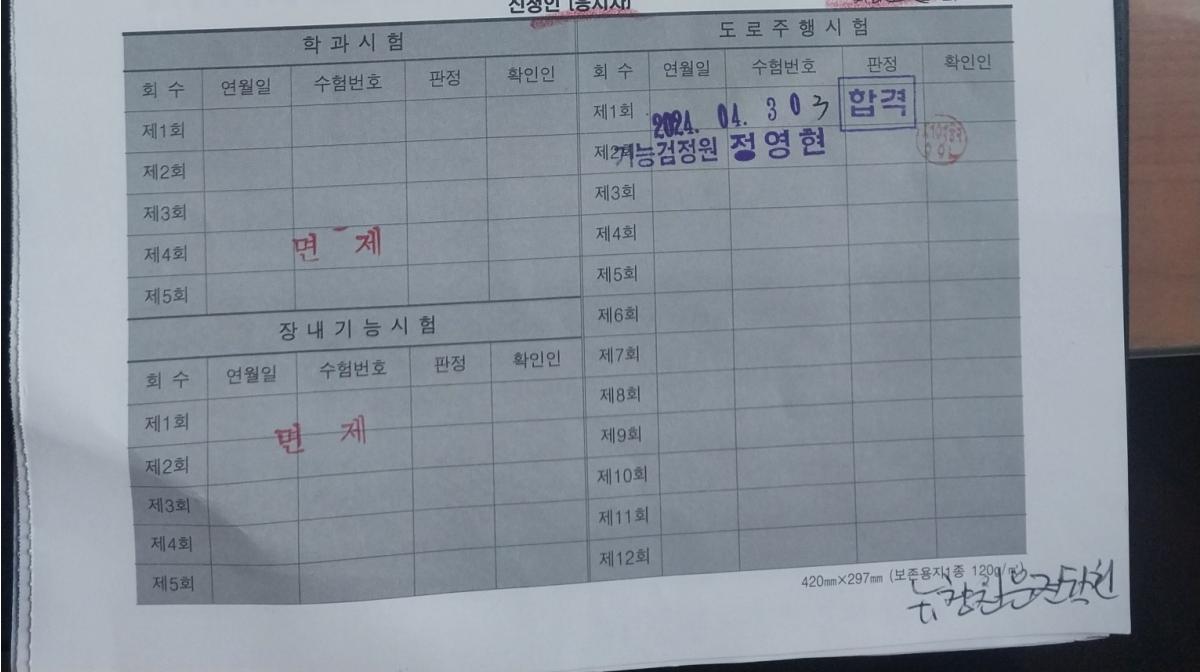 신청인 [응시자]
학 과 시 험
회 수 연월일 수험번호 판정 확인인
제1회
제2회
제3회
제4회
면 제
제5회
장 내 기 능 시 험
회 수 연월일 수험번호 판정 확인인
제1회
면 제
제2회
제3회
제4회
제5회
도 로 주 행 시 험
회 수 연월일 수험번호 판정 확인인
제1회 2024. 04. 30 3 합격
제2회 기능검정원 정영현
제3회
제4회
제5회
제6회
제7회
제8회
제9회
제10회
제11회
제12회
420㎜×297㎜ (보존용지1종 120g/㎡)
운전학원